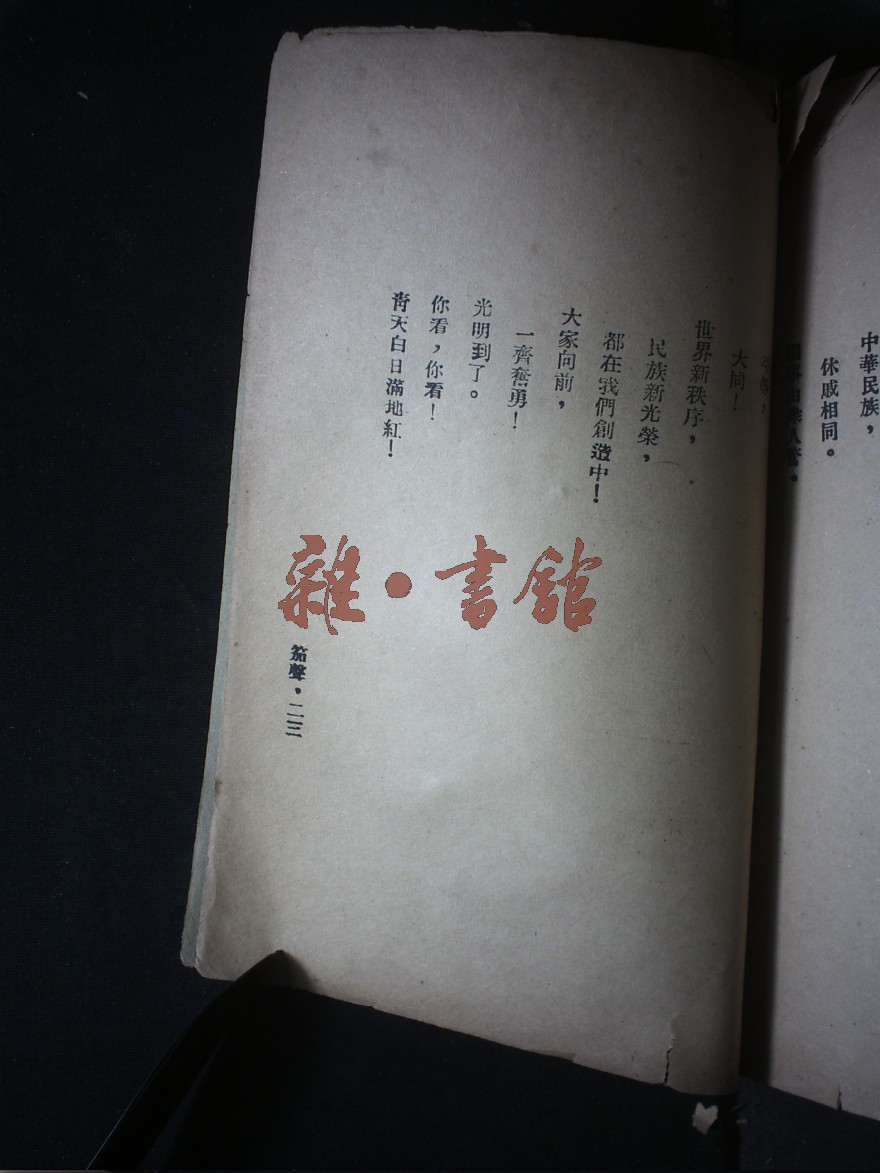 中華民族，
休戚相同。
大同！
世界新秩序，
民族新光榮，
都在我們創造中！
大家向前，
一齊奮勇！
光明到了。
你看，你看！
靑天白日滿地紅！
笳聲．二三
雜·書館